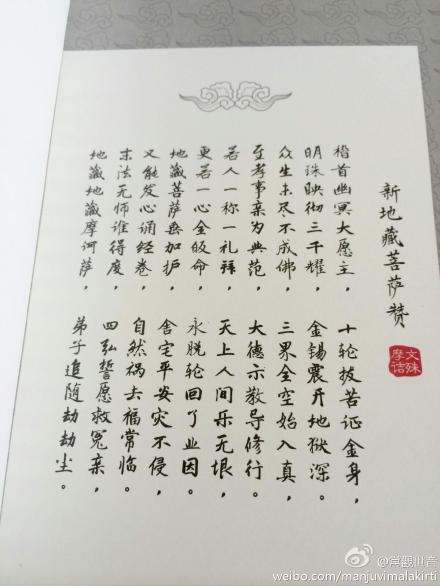 新地藏菩萨赞
文殊
摩诘
稽首幽冥大愿主，十轮拔苦证金身，
明珠映彻三千耀，金锡震开地狱深。
众生未尽不成佛，三界全空始入真，
至孝事亲为典范，大德示教导修行。
若人一称一礼拜，天上人间乐无垠，
更若一心全皈命，永脱轮回了业因。
地藏菩萨垂加护，舍宅平安灾不侵，
又能发心诵经卷，自然祸去福常临。
末法无师谁得度，四弘誓愿救冤亲，
地藏地藏摩诃萨，弟子追随劫劫尘。
@常觀世音
weibo.com/manjuvimalakirti